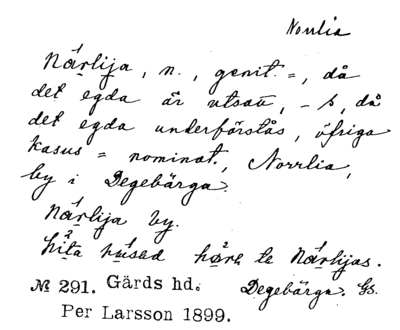 Norrlia
Nárlija, n., genit. =, då
det egda är utsatt, -s, då
det egda underförstås, öfriga
kasus = nominat., Norrlia,
by i Degebärga.
Nárlija by.
hita húsed hære te Nárlijas.
№ 291. Gärds hd. Degebärga. Gs.
Per Larsson 1899.